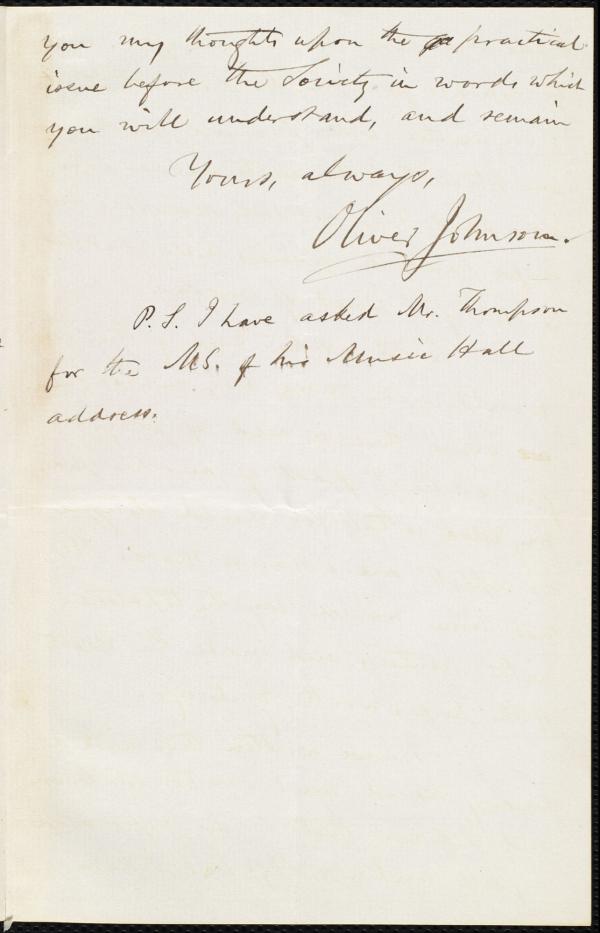 you my thoughts upon the practical
issue before the Society in words which
you will understand, and remain
Yours, always,
Oliver Johnson.
P.S. I have asked Mr. Thompson
for the MS. of his Music Hall
address.